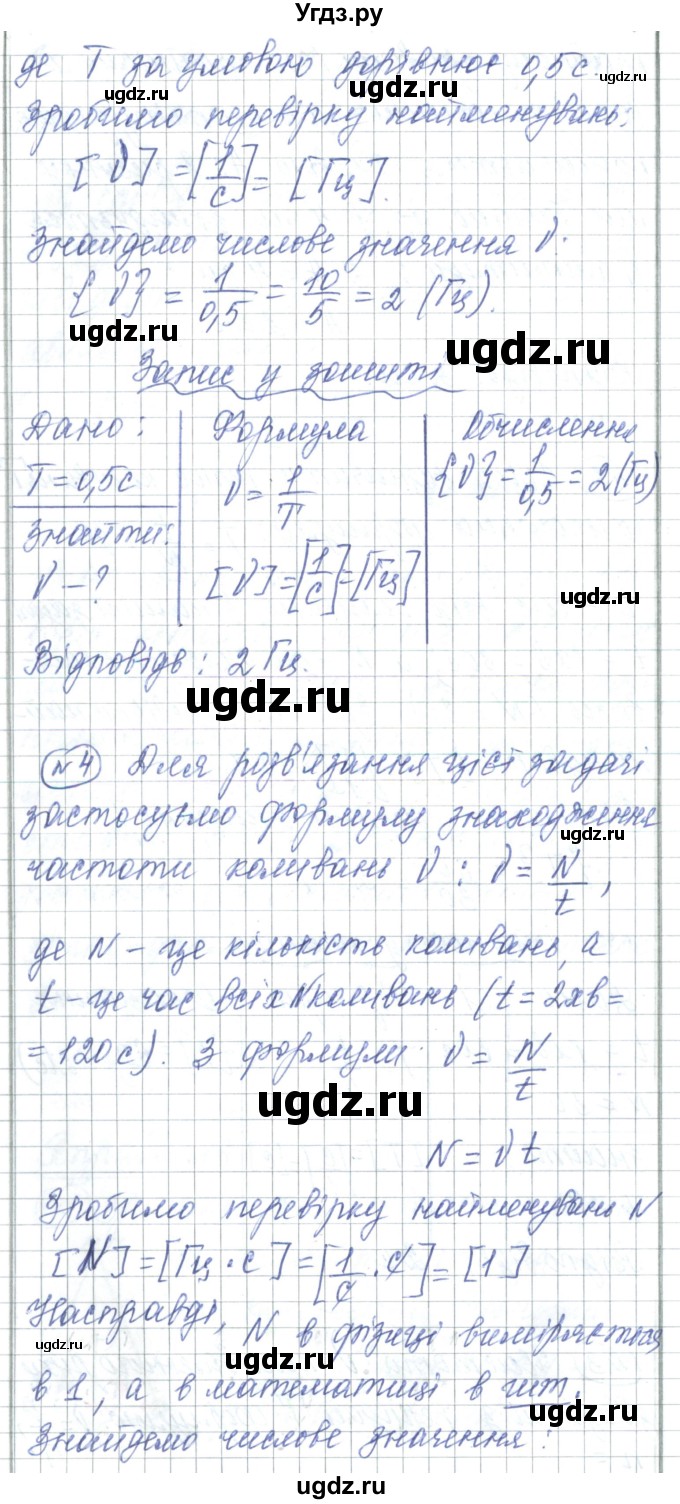 Угдз.ру
де T за умовою дорівнює 0,5 с.
Зробимо перевірку найменувань:
[ν] = [1/с] = [Гц].
Знайдемо числове значення ν:
{ν} = 1/0,5 = 10/5 = 2 (Гц).
Запис у зошиті
Дано:
T = 0,5 с
Знайти:
ν – ?
Формула
ν = 1/T
[ν] = [1/с] = [Гц]
Обчислення
{ν} = 1/0,5 = 2 (Гц)
Відповідь: 2 Гц.
№4 Для розв'язання цієї задачі
застосуємо формулу знаходження
частоти коливань ν: ν = N/t,
де N – це кількість коливань, а
t – це час всіх N коливань (t = 2хв =
= 120 с). З формули ν = N/t
N = νt
Зробимо перевірку найменувань N
[N] = [Гц · с] = [1/с · с] = [1]
Насправді, N в фізиці вимірюється
в 1, а в математиці в шт.
Знайдемо числове значення:
ugdz.ru
ugdz.ru
ugdz.ru
ugdz.ru
ugdz.ru
ugdz.ru
ugdz.ru
ugdz.ru
ugdz.ru
ugdz.ru
ugdz.ru
ugdz.ru
ugdz.ru
ugdz.ru